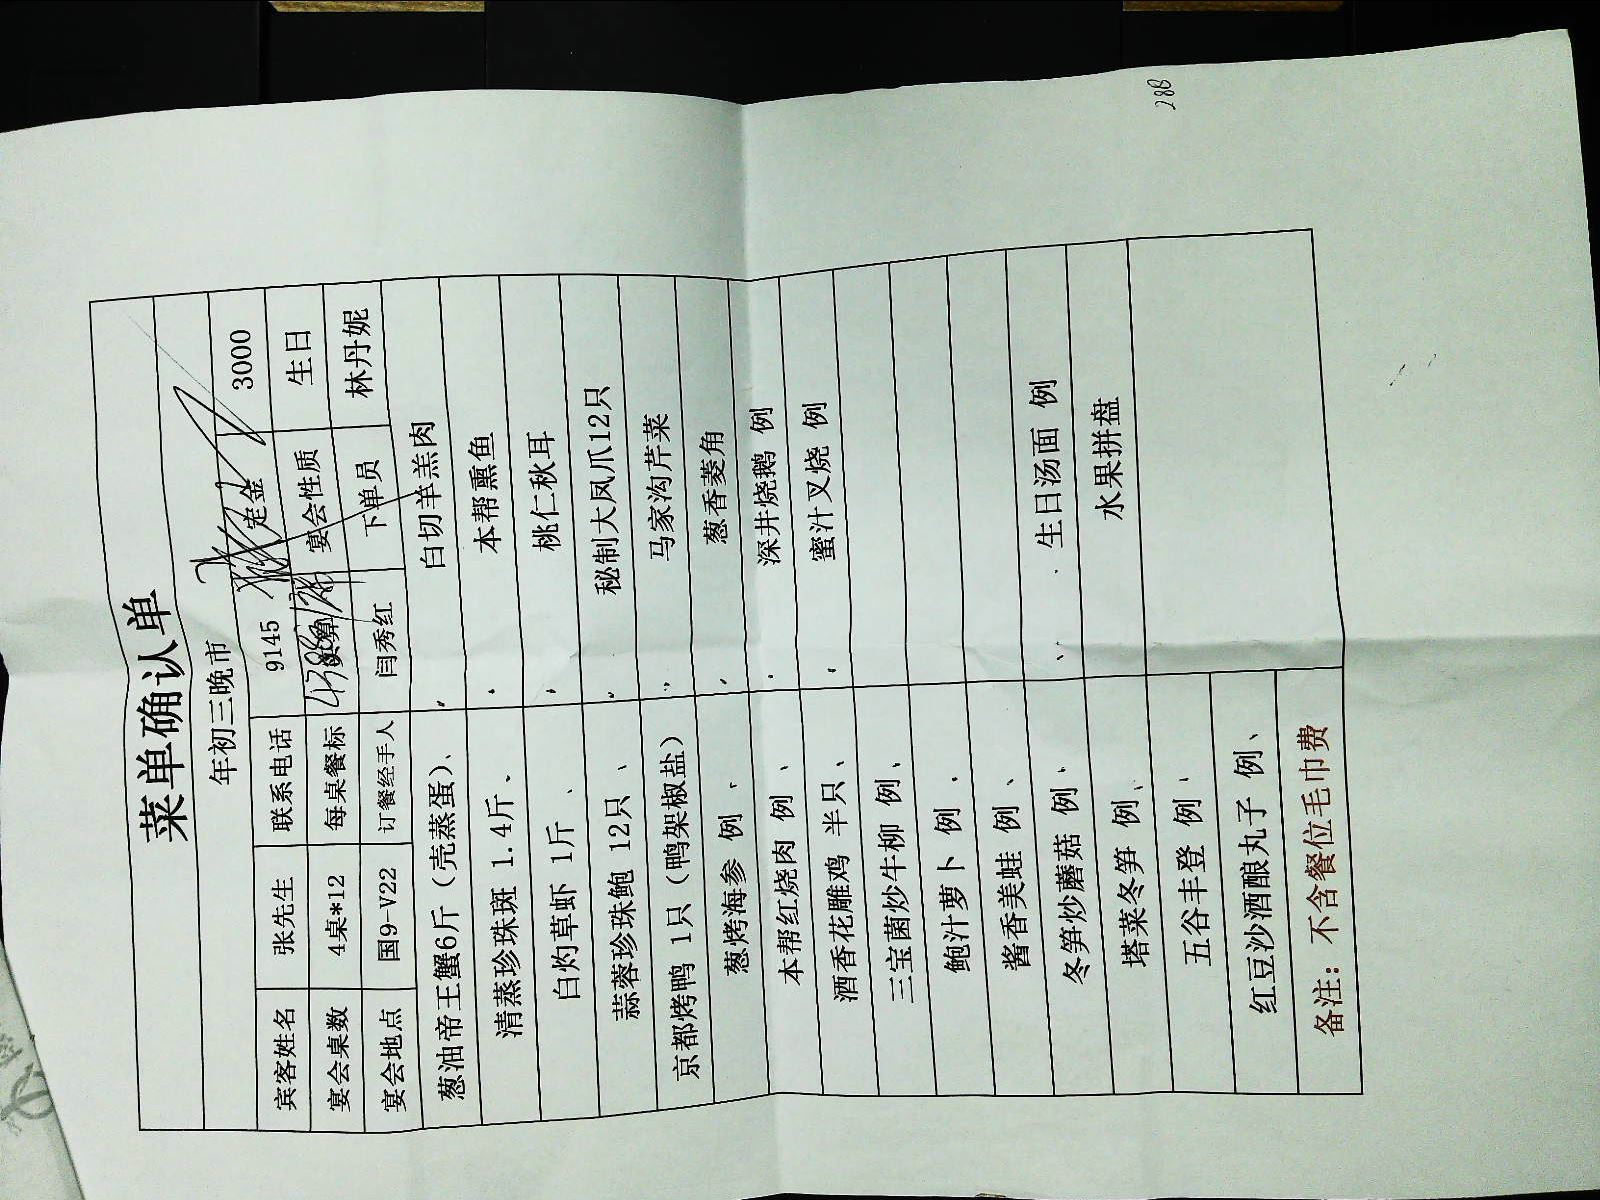 菜单确认单
年初三晚市
宾客姓名 张先生 联系电话 9145 定金 3000
宴会桌数 4桌*12 每桌餐标 宴会性质 生日
宴会地点 国9-V22 订餐经手人 闫秀红 下单员 林丹妮
葱油帝王蟹6斤（壳蒸蛋）、 白切羊羔肉
清蒸珍珠斑 1.4斤、 本帮熏鱼
白灼草虾 1斤 、 桃仁秋耳
蒜蓉珍珠鲍 12只 、 秘制大凤爪12只
京都烤鸭 1只（鸭架椒盐） 马家沟芹菜
葱烤海参 例 、 葱香菱角
本帮红烧肉 例 、 深井烧鹅 例
酒香花雕鸡 半只、 蜜汁叉烧 例
三宝菌炒牛柳 例、
鲍汁萝卜 例 、
酱香美蛙 例 、
冬笋炒蘑菇 例、 生日汤面 例
塔菜冬笋 例、 水果拼盘
五谷丰登 例 、
红豆沙酒酿丸子 例、
备注：不含餐位毛巾费
28B